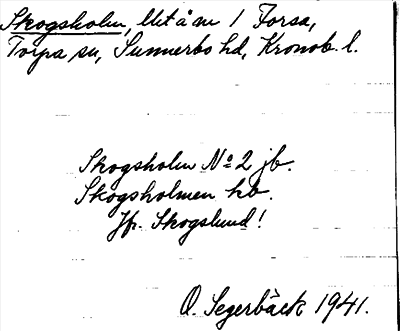 Skogsholm, lht å nr 1 Forsa,
Torpa sn, Sunnerbo hd, Kronob. l.
Skogsholm No 2 jb.
Skogsholmen kb.
Jfr. Skogslund!
O. Segerbäck 1941.